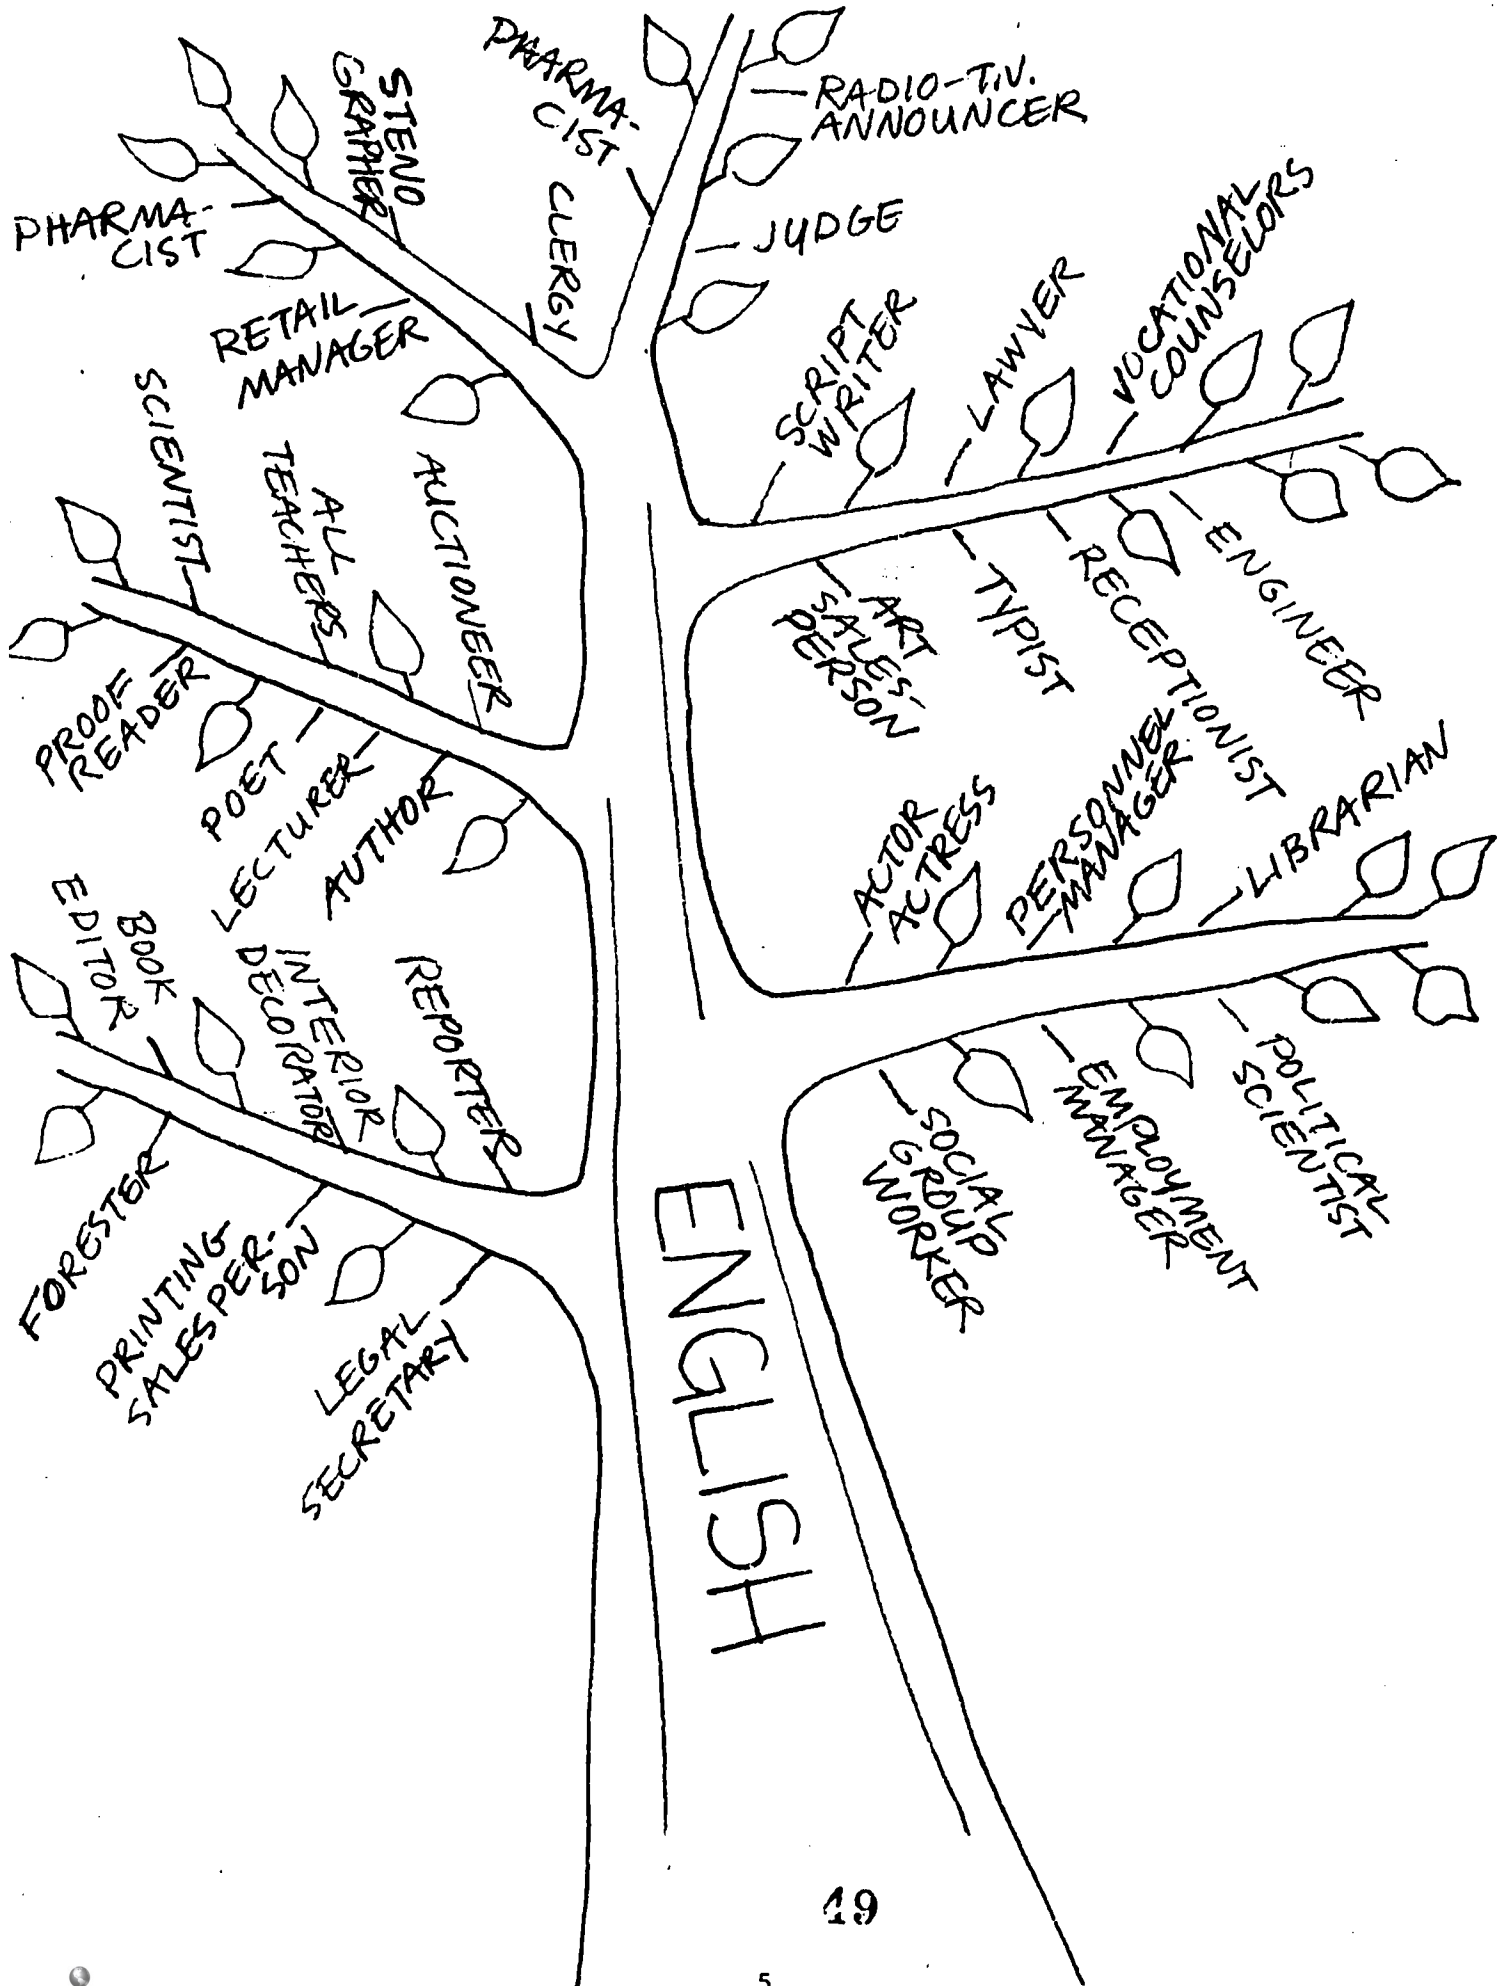 PHARMA-
CIST
RADIO-T.V.
ANNOUNCER
STENO
GRAPHER
PHARMA-
CIST
CLERGY
JUDGE
RETAIL
MANAGER
SCRIPT
WRITER
LAWYER
VOCATIONAL
COUNSELORS
SCIENTIST
ALL
TEACHERS
AUCTIONEER
ART
SALES-
PERSON
TYPIST
RECEPTIONIST
ENGINEER
PROOF
READER
POET
LECTURER
AUTHOR
ACTOR
ACTRESS
PERSONNEL
MANAGER
LIBRARIAN
BOOK
EDITOR
INTERIOR
DECORATOR
REPORTER
SOCIAL
GROUP
WORKER
EMPLOYMENT
MANAGER
POLITICAL
SCIENTIST
FORESTER
PRINTING
SALESPER-
SON
LEGAL
SECRETARY
ENGLISH
49
5